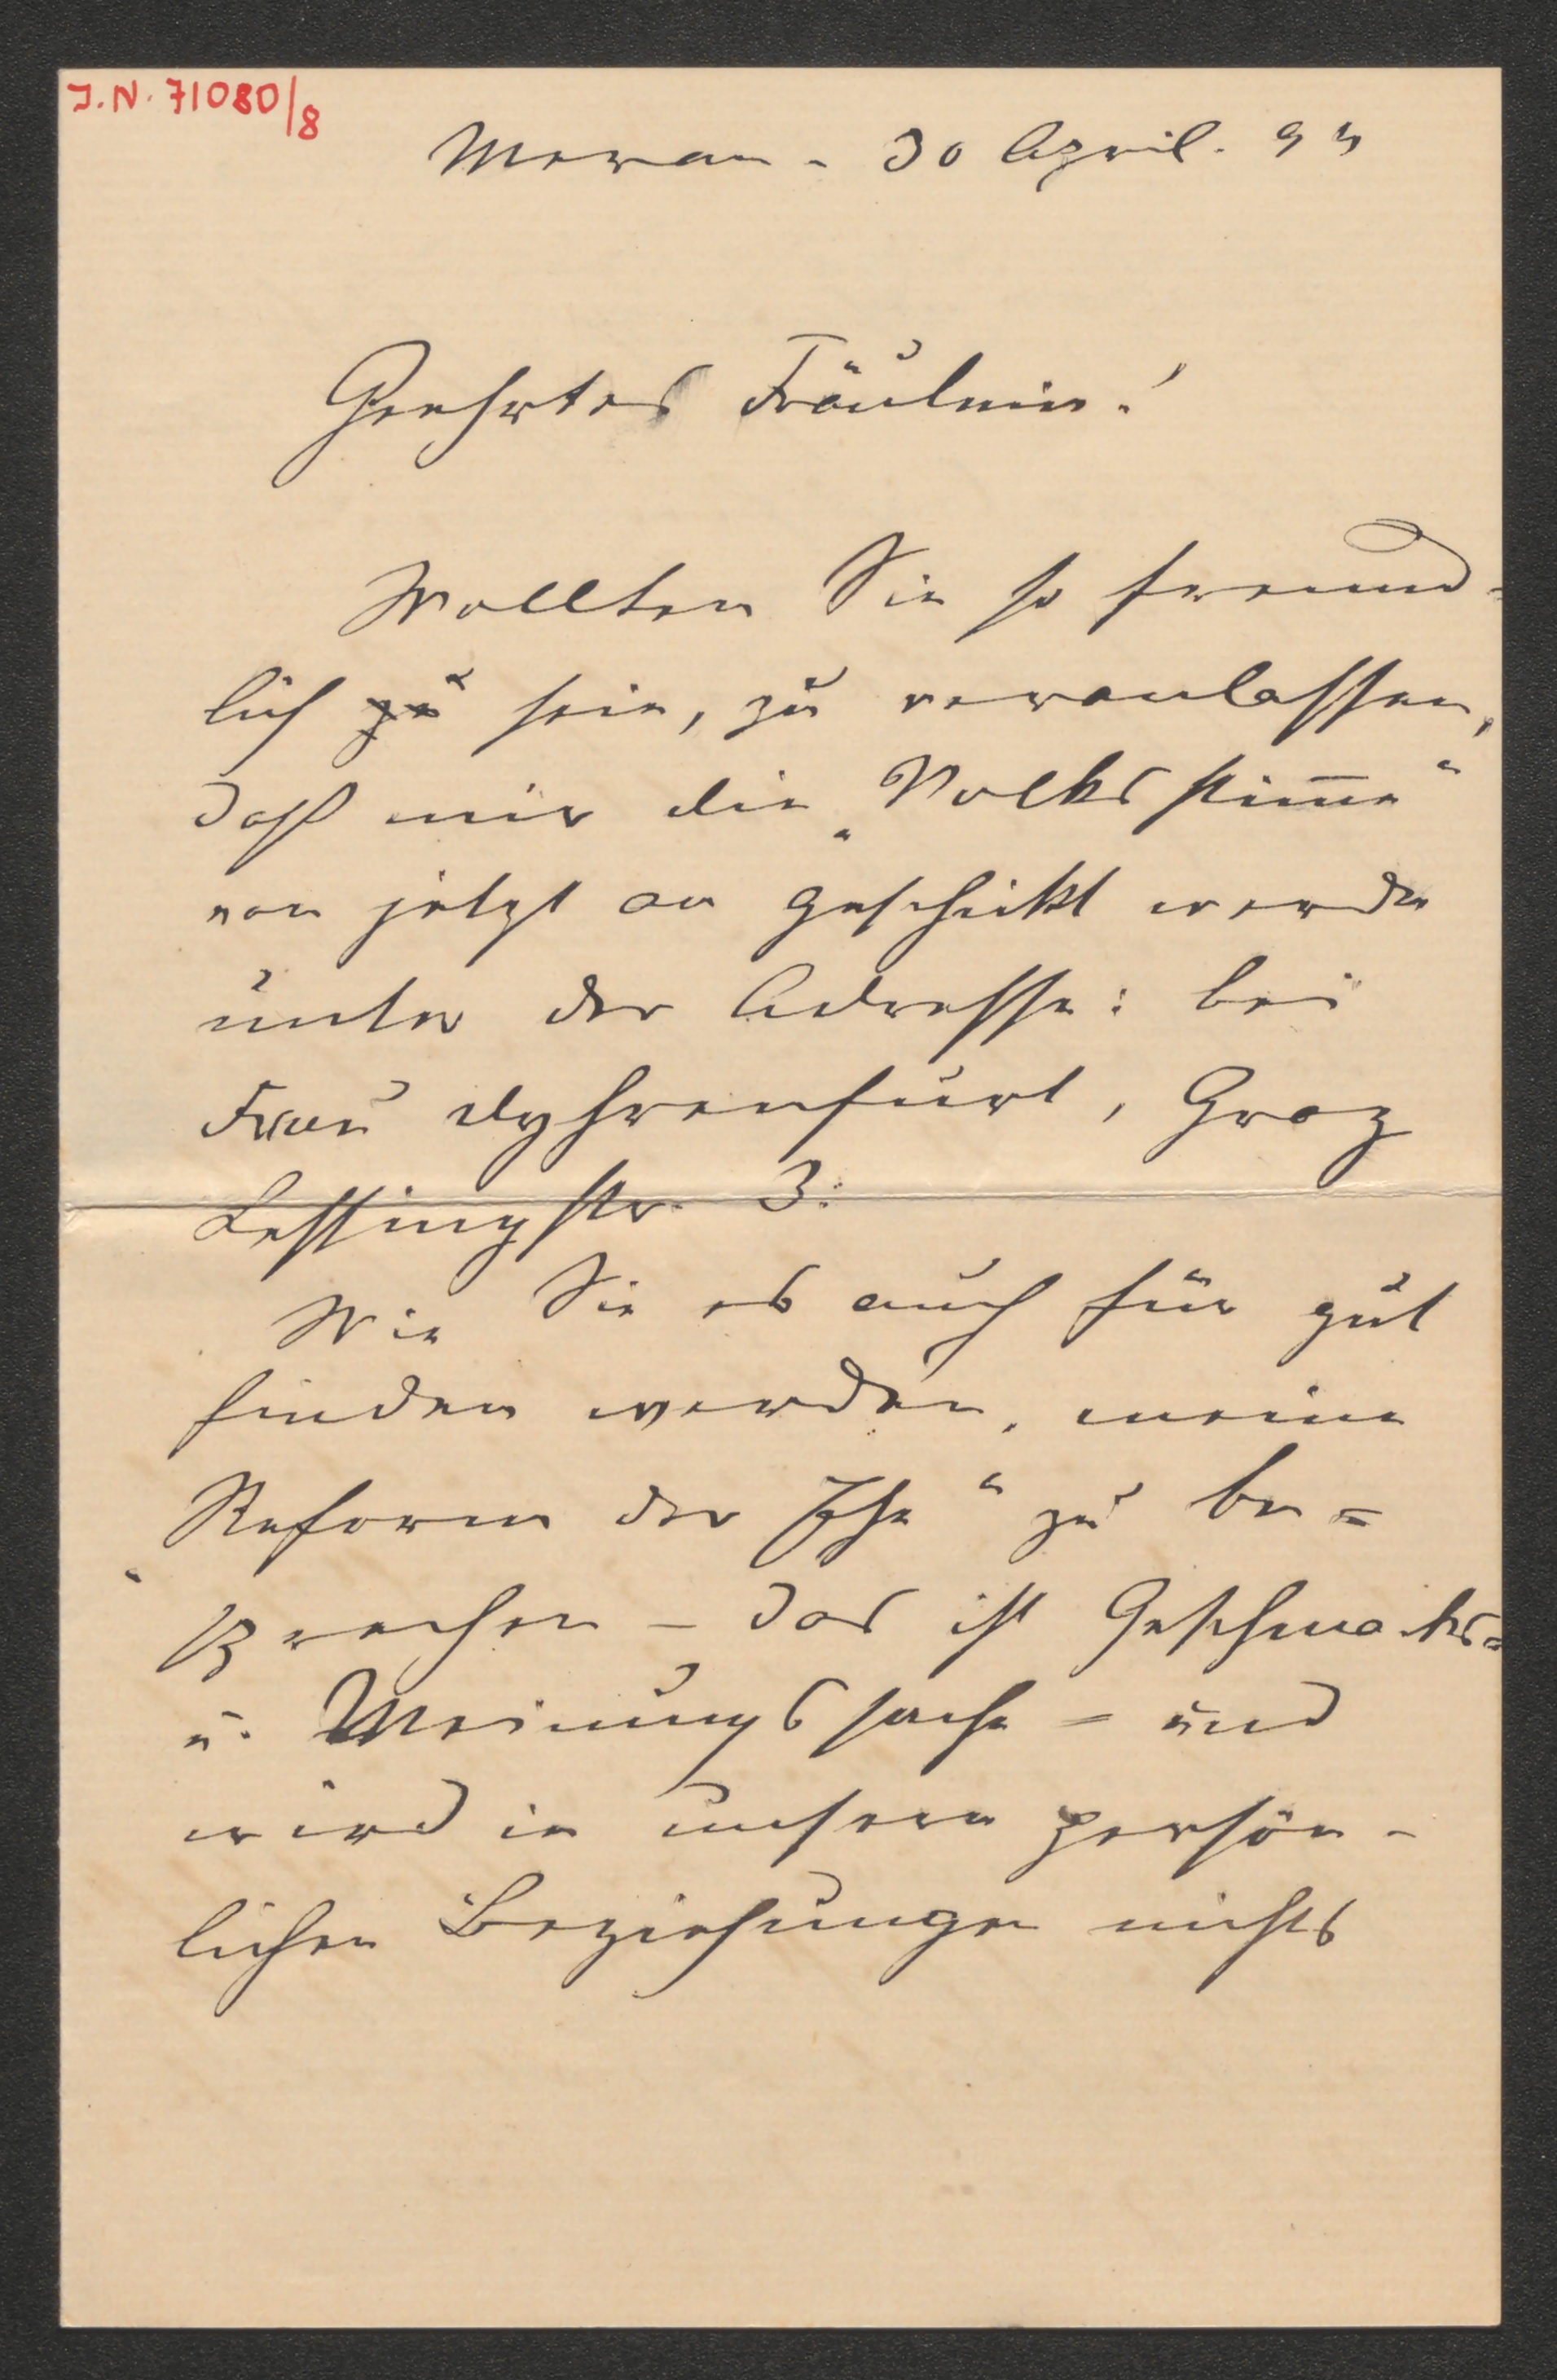 J.N. 71080/8
Meran - 30 April. 93
Geehrtes Fräulein!
Wollten Sie so freund-
lich zu sein, zu veranlassen,
daß mir die „Volksstimme“
von jetzt an geschickt werde
unter der Adresse: bei
Frau Dyhrenfurt, Graz
Lessingstr. 3.
Wie Sie es auch für gut
finden werden, meine
„Reform der Ehe“ zu be=
sprechen - das ist Geschmacks=
u. Meinungssache - und
wird in unsern persön-
lichen Beziehungen nichts